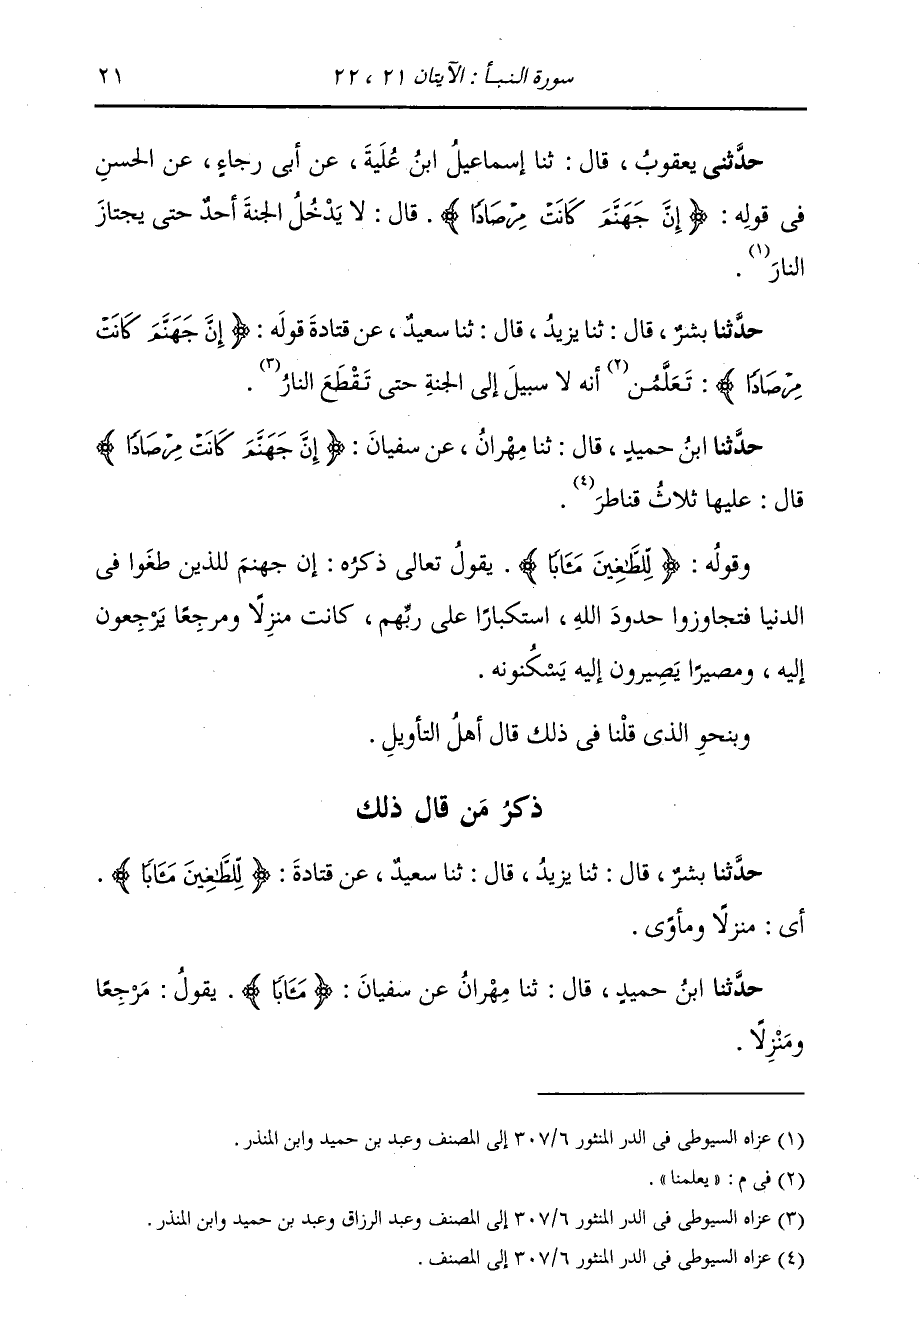 سورة النبأ : الآيتان ٢١ ، ٢٢ ٢١
حدَّثنى يعقوبُ ، قال : ثنا إسماعيلُ ابنُ عُلَيةَ ، عن أبى رجاءٍ ، عن الحسنِ
فى قولِه : ﴿ إِنَّ جَهَنَّمَ كَانَتْ مِرْصَادًا ﴾ . قال : لا يَدْخُلُ الجنةَ أحدٌ حتى يجتازَ
النارَ(١) .
حدَّثنا بشرٌ ، قال : ثنا يزيدُ ، قال : ثنا سعيدٌ ، عن قتادةَ قولَه : ﴿ إِنَّ جَهَنَّمَ كَانَتْ
مِرْصَادًا ﴾ : تَعَلَّمُن(٢) أنه لا سبيلَ إلى الجنةِ حتى تَقْطَعَ النارُ(٣) .
حدَّثنا ابنُ حميدٍ ، قال : ثنا مِهْرانُ ، عن سفيانَ : ﴿ إِنَّ جَهَنَّمَ كَانَتْ مِرْصَادًا ﴾
قال : عليها ثلاثُ قناطرَ(٤) .
وقولُه : ﴿ لِّلطَّٰغِينَ مَـَٔابًا ﴾ . يقولُ تعالى ذكرُه : إن جهنمَ للذين طغَوا فى
الدنيا فتجاوزوا حدودَ اللهِ ، استكبارًا على ربِّهم ، كانت منزِلًا ومرجِعًا يَرْجِعون
إليه ، ومصيرًا يَصِيرون إليه يَسْكُنونه .
وبنحوِ الذى قلْنا فى ذلك قال أهلُ التأويلِ .
ذكرُ مَن قال ذلك
حدَّثنا بشرٌ ، قال : ثنا يزيدُ ، قال : ثنا سعيدٌ ، عن قتادةَ : ﴿ لِّلطَّٰغِينَ مَـَٔابًا ﴾ .
أى : منزلًا ومأوًى .
حدَّثنا ابنُ حميدٍ ، قال : ثنا مِهْرانُ عن سفيانَ : ﴿ مَـَٔابًا ﴾ . يقولُ : مَرْجِعًا
ومَنْزِلًا .
(١) عزاه السيوطى فى الدر المنثور ٣٠٧/٦ إلى المصنف وعبد بن حميد وابن المنذر .
(٢) فى م : « يعلمنا » .
(٣) عزاه السيوطى فى الدر المنثور ٣٠٧/٦ إلى المصنف وعبد الرزاق وعبد بن حميد وابن المنذر .
(٤) عزاه السيوطى فى الدر المنثور ٣٠٧/٦ إلى المصنف .